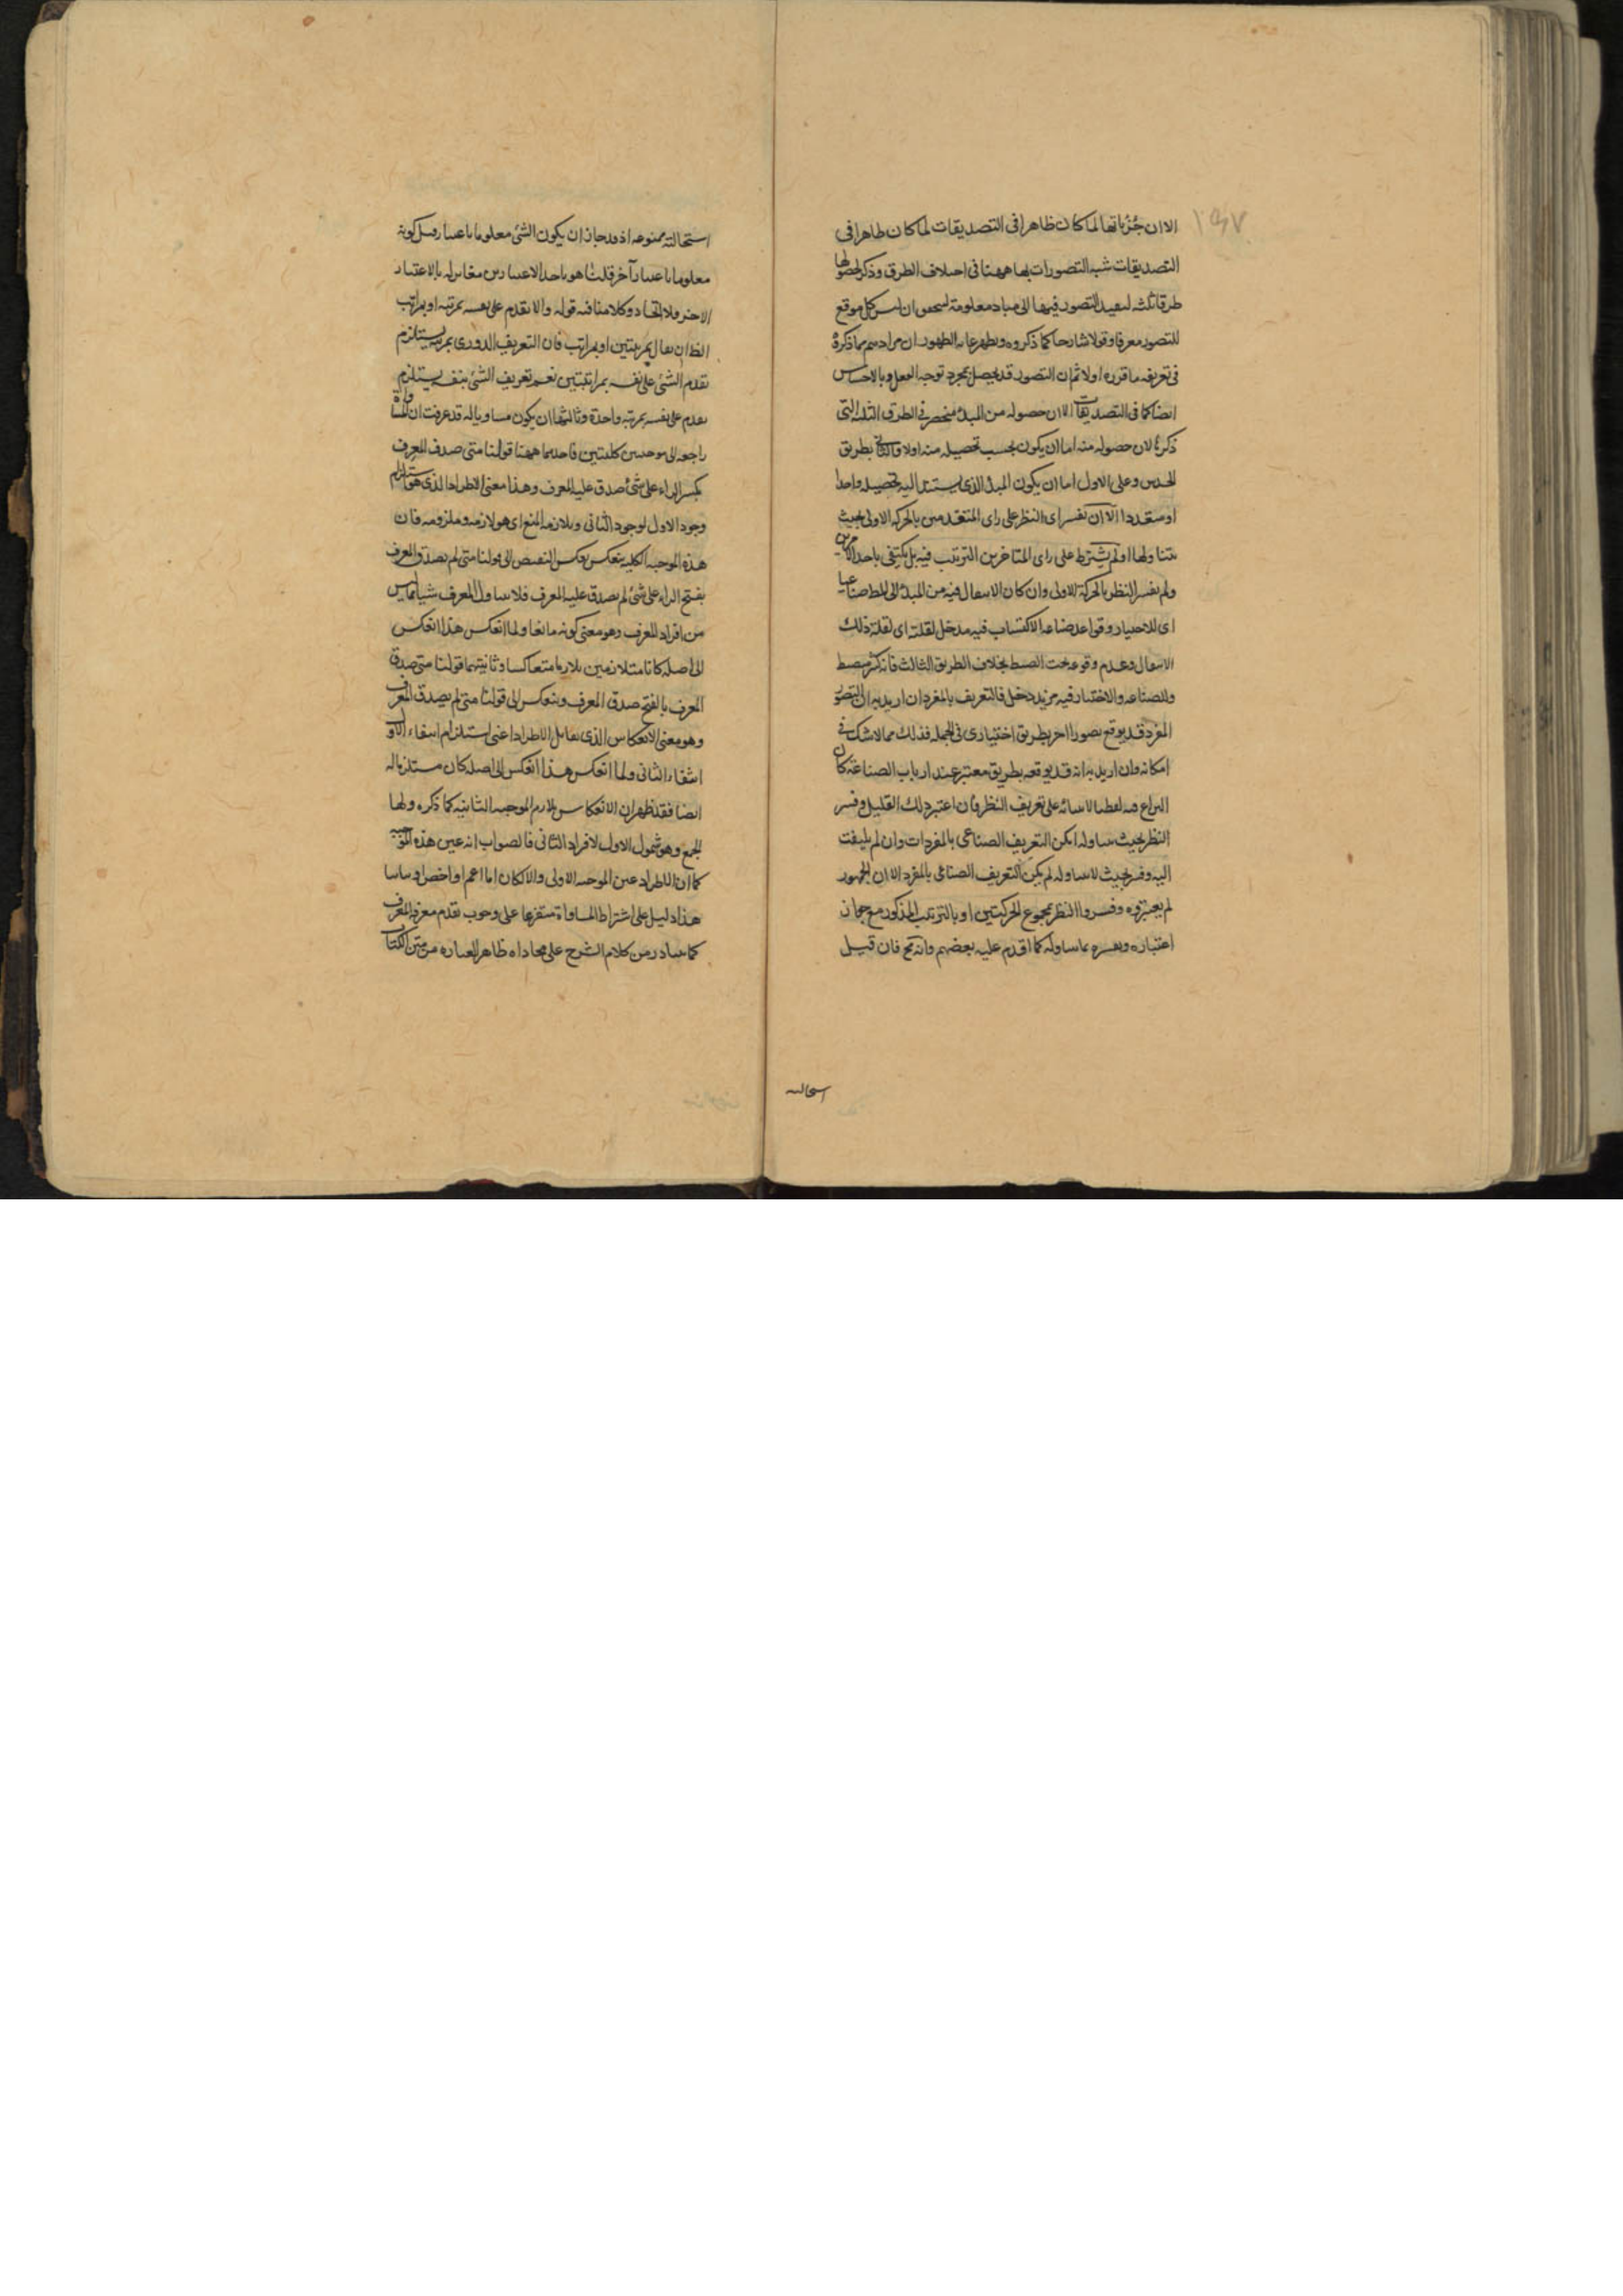 ١٩٧
الا ان جزئياتها لما كان ظاهرا فى التصديقات لما كان ظاهرا فى
التصديقات شبه التصورات بها ههنا فى اختلاف الطرق وذكر لحصولها
طرقا ثلثه ليفيد التصور فيها الى مباد معلومة ليتحقق ان ليس كل موقع
للتصور معرفا وقولا شارحا كما ذكروه ويظهر غاية الظهور ان مرادهم بما ذكره
فى تعريفه ما قرره اولا ثم ان التصور قد يحصل بمجرد توجه العقل وبالاحساس
ايضا كما فى التصديقات الا ان حصوله من المبدء منحصر فى الطرق الثلثه التى
ذكره لان حصوله منه اما ان يكون بحسب تحصيله منه اولا والثانى بطريق
الحدس وعلى الاول اما ان يكون المبدء الذى يستند اليه تحصيله واحدا
او متعددا الا ان تفسر اى النظر على راى المتقدمين بالحركه الاولى بحيث
يتناولها او لم يشترط على راى المتاخرين الترتيب فيه بل يكتفى باحد الامرين
ولم يفسر النظر بالحركة الاولى وان كان الانتقال فيه من المبدء الى المط صناعيا
اى للاختيار وقواعد صناعه الاكتساب فيه مدخل لقلته اى لقلة ذلك
الانتقال وعدم وقوعه تحت الضبط بخلاف الطريق الثالث فانه كثر منضبط
وللصناعه والاختيار فيه مزيد دخل فالتعريف بالمفرد ان اريد به ان التصور
المفرد قد يوقع تصورا اخر بطريق اختيارى فى الجمله فذلك مما لا شك فى
امكانه وان اريد به انه قد يوقعه بطريق معتبر عند ارباب الصناعة كان
النزاع فيه لفظيا لابتنائه على تعريف النظر فان اعتبر ذلك القليل وفسر
النظر بحيث يتناوله امكن التعريف الصناعى بالمفردات وان لم يلتفت
اليه وفسر بحيث لا يتناوله لم يكن التعريف الصناعى بالمفرد الا ان الجمهور
لم يعتبروه وفسروا النظر بمجموع الحركتين او بالترتيب المذكور مع جواز
اعتباره وتفسيره بما يتناوله كما اقدم عليه بعضهم وانه مح فان قيل
استحالته
استحالته ممنوعه اذ قد جاز ان يكون الشئ معلوما باعتبار وقبل كونه
معلوما باعتبار آخر قلنا هو باحد الاعتبارين مغاير له بالاعتبار
الاخر فلا اتحاد وكلامنا فيه قوله والا تقدم على نفسه بمرتبه او بمراتب
الظ ان يقال بمرتبتين او بمراتب فان التعريف الدورى بمرتبه يستلزم
تقدم الشئ على نفسه بمراتبتين نعم تعريف الشئ بنفسه يستلزم
تقدمه على نفسه بمرتبه واحدة وثالثها ان يكون مساويا له قد عرفت ان المساواة
راجعه الى موجبتين كليتين فاحديهما ههنا قولنا متى صدق المعرف
بكسر الراء على شئ صدق عليه المعرف وهذا معنى الاطراد الذى هو استلزام
وجود الاول لوجود الثانى ويلازمه المنع اى هو لازمه وملزومه فان
هذه الموجبه الكليه ينعكس بعكس النقيض الى قولنا متى لم يصدق المعرف
بفتح الراء على شئ لم يصدق عليه المعرف فلا يتناول المعرف شيا مما ليس
من افراد المعرف وهو معنى كونه مانعا ولما انعكس هذا العكس
الى اصله كانا متلازمين تلازما متعاكسا وثانيتهما قولنا متى صدق
المعرف بالفتح صدق المعرف وينعكس الى قولنا متى لم يصدق المعرف
وهو معنى الانعكاس الذى يقابل الاطراد اعنى استلزام انتفاء الاول
انتفاء الثانى ولما انعكس هذا العكس الى اصله كان مستلزما له
ايضا فقد ظهر ان الانعكاس يلازم الموجبه الثانيه كما ذكره ولها
الجمع وهو شمول الاول لافراد الثانى فالصواب انه عين هذه الموجبه
كما ان الاطراد عين الموجبه الاولى والا لكان اما اعم او اخص او مباينا
هذا دليل على اشتراط المساواة متفرعا على وجوب تقدم معرفة المعرف
كما يتبادر من كلام الشرح على محاذاه ظاهر العباره من متن الكتاب